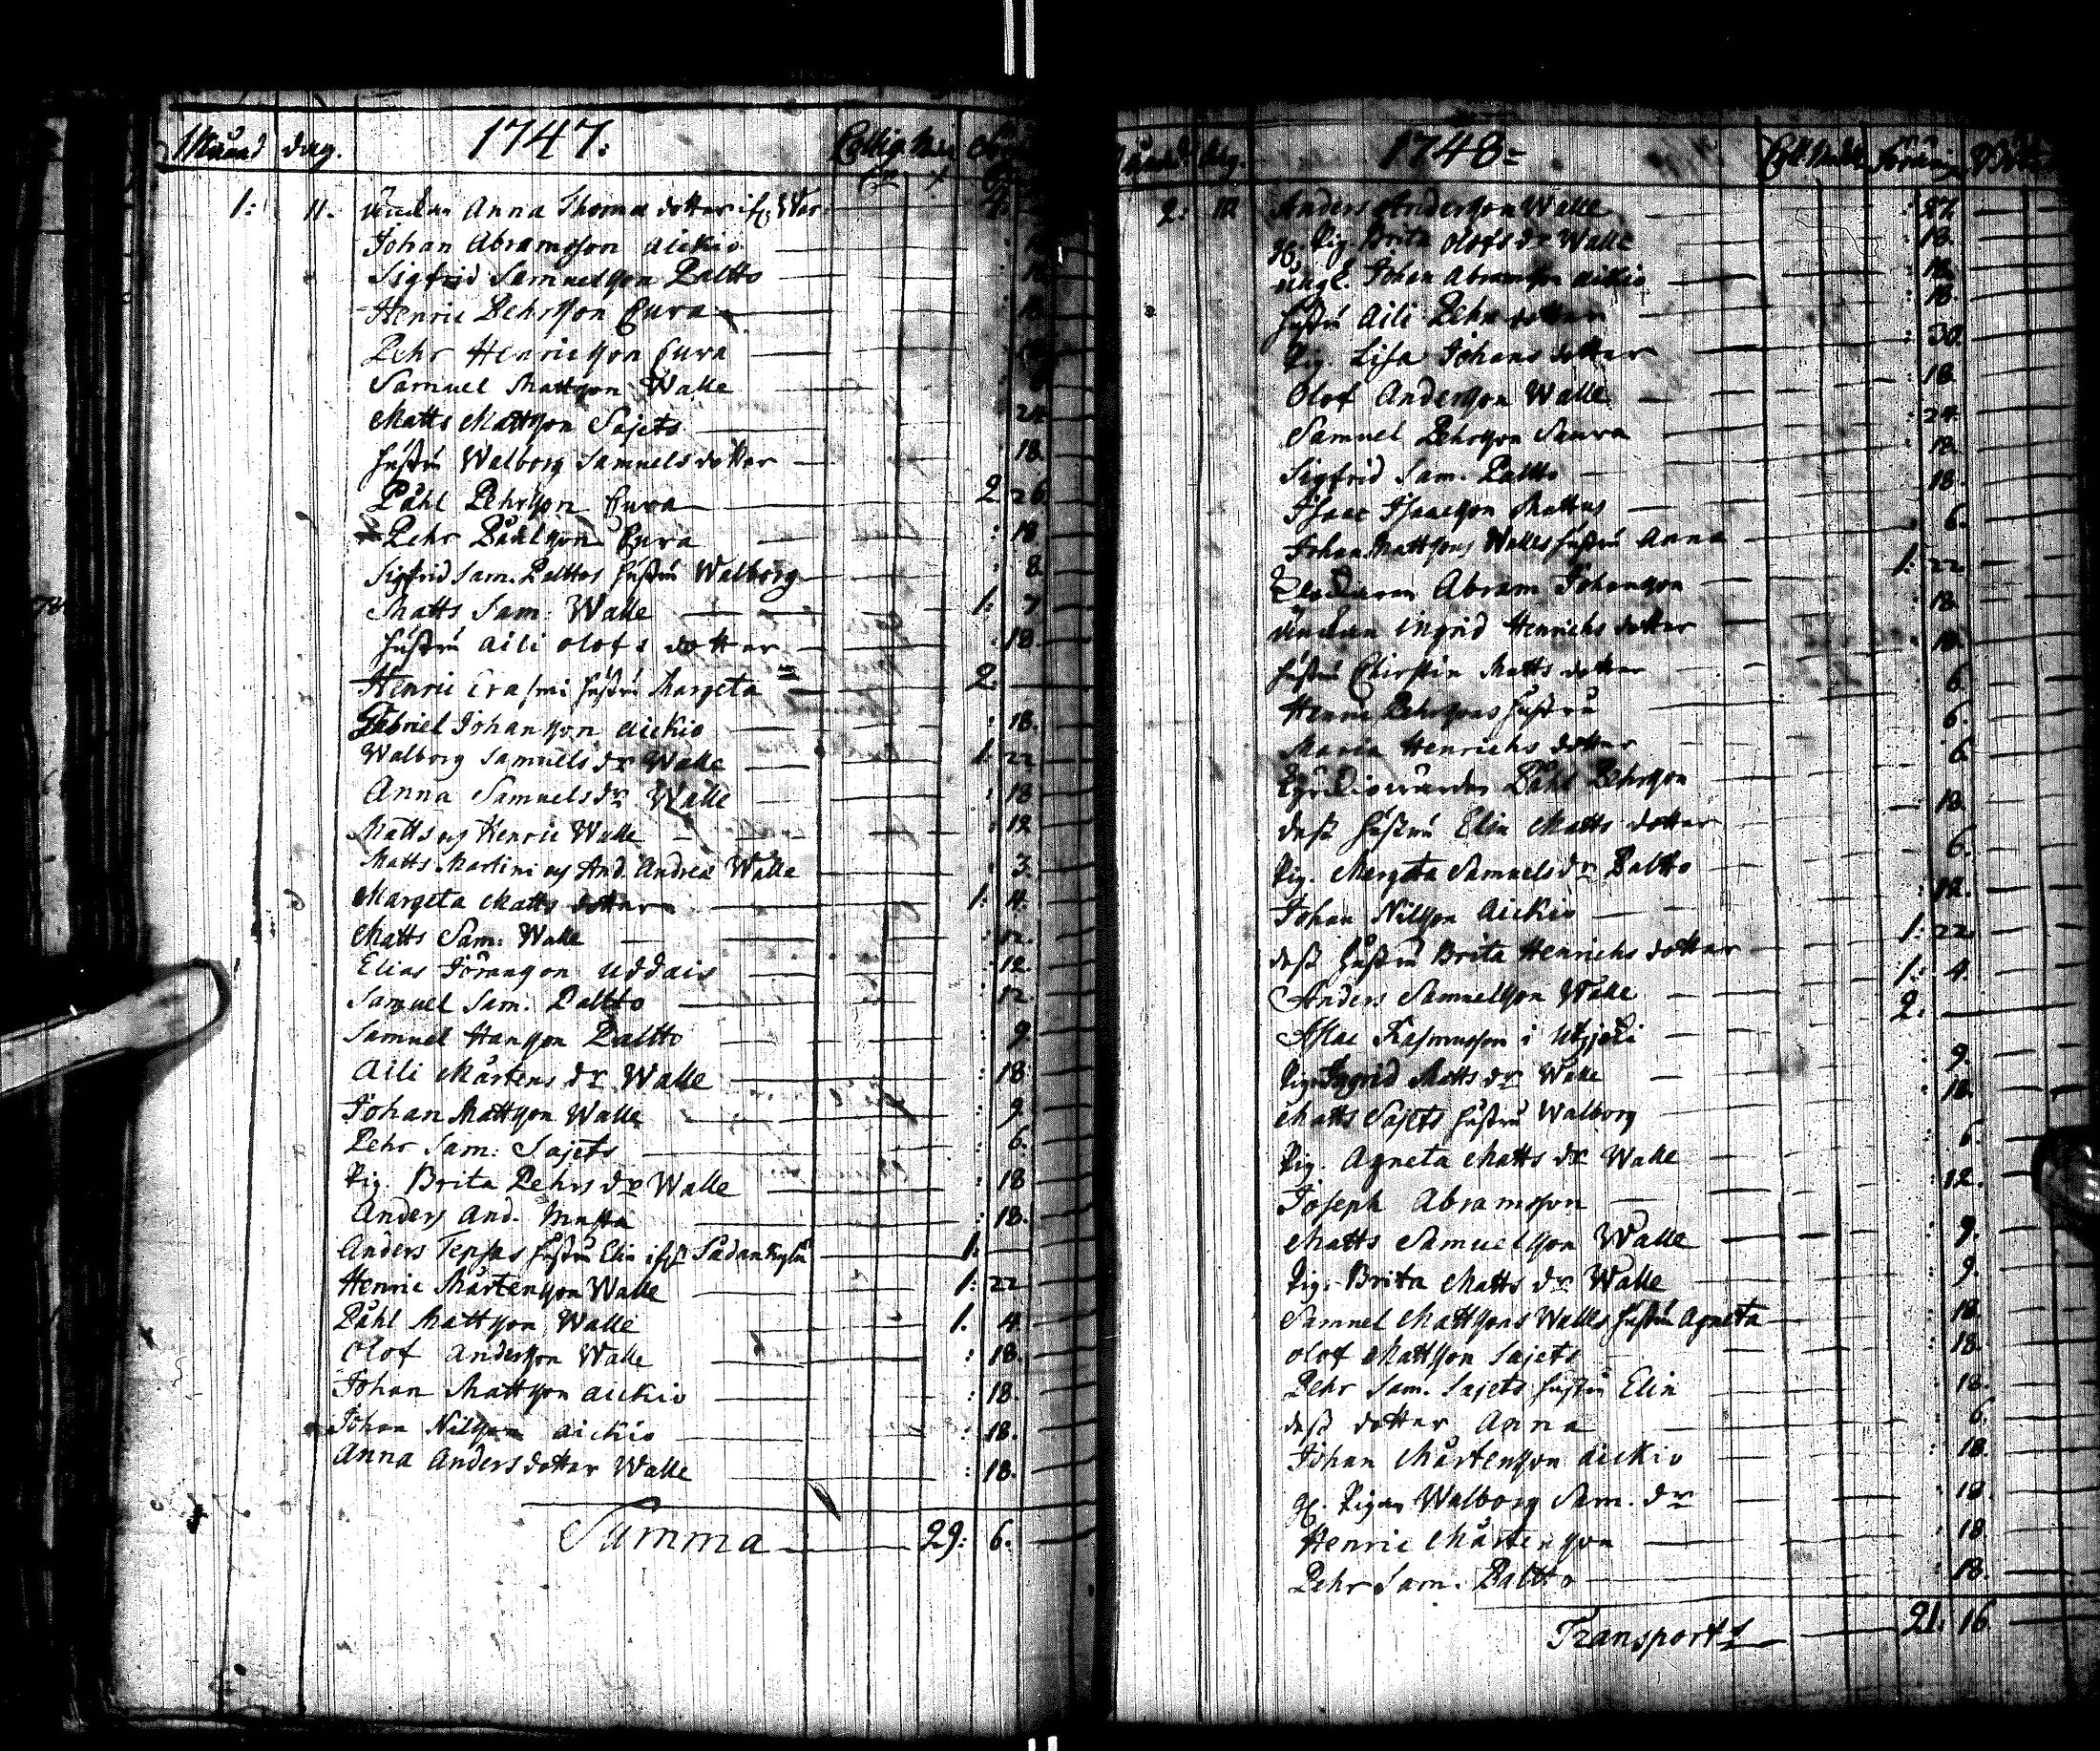 Månad dag. 1747:
1: 11. Änckan Anna Thomæ dotter
Johan Abramsson Aickio
Sigfrid Samuelsson Paltto
Henric Pehrsson Cura
Pehr Henricsson Cura
Samuel Mattsson Walle
Matts Mattsson Sajets 24
hustru Walborg Samuelsdotter 18.
Påhl Pehrsson Cura 2 26
Pehr Påhlsson Cura : 18
Sigfrid Sam. Palttos hustru Walborg : 8
Matts Sam: Walle 1: 7
hustru Aili Olofs dotter : 18.
Henric Erasmi hustru Margeta 2.
Gabriel Johansson Aickio : 18.
Walborg Samuels dr Walle 1: 22
Anna Samuelsdr Walle : 18
Matts och Henric Walle : 12
Matts Martini och And. Andreæ Walle : 3.
Margeta Matts dotter 1: 4.
Matts Sam: Walle : 12.
Elias Jöransson Uddais : 12.
Samuel Sam. Paltto : 12.
Samuel Hansson Paltto : 9.
Aili Mårtens dr Walle : 18
Johan Mattsson Walle : 9
Pehr Sam: Sajets : 6.
Pig. Brita Pehrs dr Walle : 18
Anders And. Musta : 18.
Anders Tepsas hustru Elin Sådankylä 1.
Henric Mårtensson Walle 1: 22
Påhl Mattsson Walle 1. 4
Olof Andersson Walle : 18.
Johan Mattsson Aickio : 18.
Johan Nilsson Aickio : 18.
Anna Anders dotter Walle : 18.
Summa 29: 6.
Månad dag. 1748
2: Anders Andersson Walle : 27.
Pig. Brita Olofs dr Walle : 18.
Johan Abramsson Aickio : 18
hustru Aili Pehrs dotter : 18.
Pig. Lisa Johans dotter : 30.
Olof Andersson Walle : 18
Samuel Pehrsson Saura : 24.
Sigfrid Sam. Paltto : 18.
Isaac Isaacsson Mattus : 18.
Johan Mattsons Walles hustru Anna : 6.
Abram Johansson 1: 22
Änckan Ingrid Henrichs dotter : 18
hustru Chirstin Matts dotter : 18.
Henric Pehrsons hustru : 6.
Maria Henrichs dotter 6.
Kyrckiowärden Påhl Pehrsson 6
dess hustru Elin Matts dotter 18.
Pig. Margeta Samuelsdr Paltto 6.
Johan Nilsson Aickio : 12.
dess hustru Brita Henrichs dotter 1: 22
Anders Samuelsson Walle 1: 4.
Aslac Rasmusson i Utzjocki 2:
Pig. Ingrid Matts dr Walle : 9.
Matts Sajets hustru Walborg : 18.
Pig. Agneta Matts dr Walle : 6.
Joseph Abramsson : 12.
Matts Samuelsson Walle : 9.
Pig. Brita Matts dr Walle : 9.
Samuel Mattsons Walles hustru Agneta : 18
Olof Mattsson Sajets : 18.
Pehr Sam. Sajets hustru Elin : 18.
dess dotter Anna : 6.
Johan Mårtensson Aickio : 18.
Pigan Walborg Sam. dr : 18.
Henric Mårtensson : 18
Pehr Sam. Paltto : 18.
Transport 21: 16.